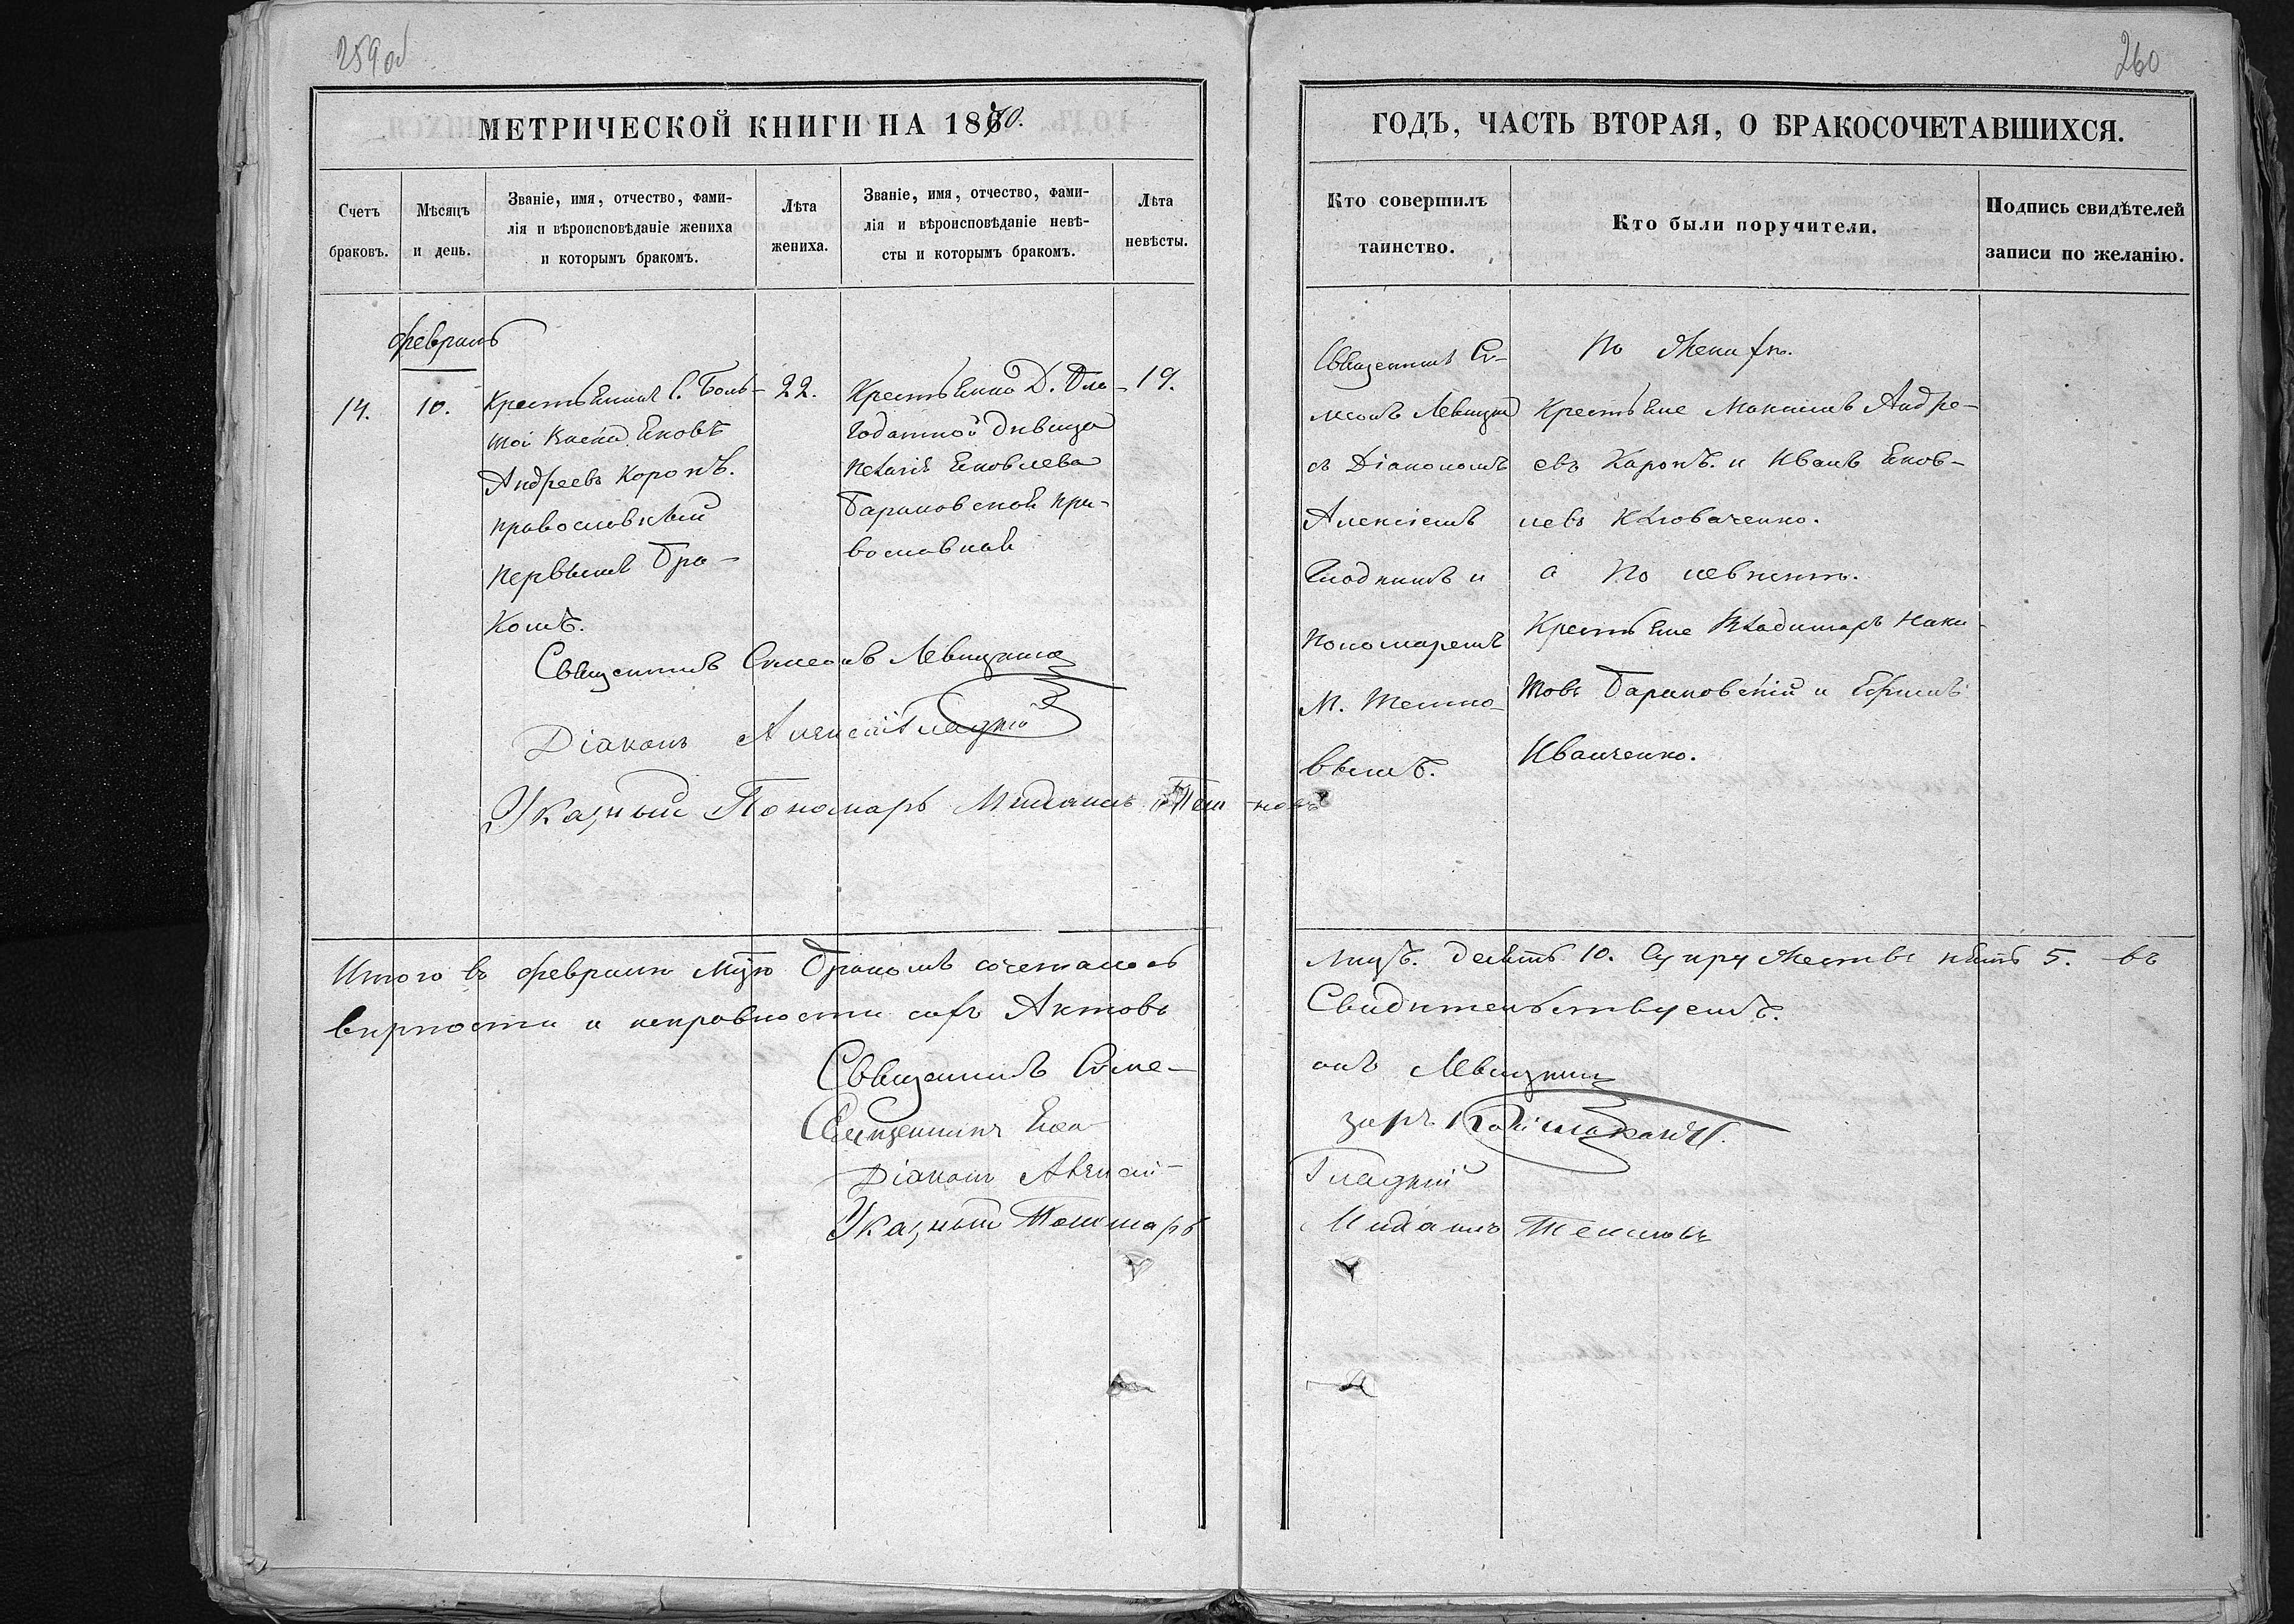 259об
260
МЕТРИЧЕСКОЙ КНИГИ НА 1870.
ГОДЪ, ЧАСТЬ ВТОРАЯ, О БРАКОСОЧЕТАВШИХСЯ.
Счетъ
браковъ.
Мѣсяцъ
и день.
Званіе, имя, отчество, фами-
лія и вѣроисповѣданіе жениха
и которымъ бракомъ.
Лѣта
жениха.
Званіе, имя, отчество, фами-
лія и вѣроисповѣданіе невѣ-
сты и которымъ бракомъ.
Лѣта
невѣсты.
Кто совершилъ
таинство.
Кто были поручители.
Подпись свидѣтелей
записи по желанію.
Февраль
14.
10.
Крестьянинъ С.
Яковъ
Андреевъ Коропъ.
православный
первымъ бра-
комъ.
22.
Крестьянка Д. Бла-
годатной дѣвица
Яковлева
Барановская пра-
вославная
19.
Священникъ Си-
меонъ Левицкій
съ Діакономъ
Алексіемъ
Гладкимъ и
Пономаремъ
М. Темно-
вымъ.
По женихѣ.
Крестьяне Максимъ Андре-
евъ Коропъ. и Иванъ Яков-
левъ
а по невѣстѣ.
Крестьяне Владимиръ Ники-
товъ Барановскій и Ефимъ
Иванченко.
Священникъ Симеонъ Левицкій
Діаконъ Алексій Гладкій
Указный Пономарь Михаилъ Темновъ
Итого въ февралѣ мцѣ бракомъ сочеталось
лицъ. десять 10. Супружествъ пять 5. въ
вѣрности и исправности сихъ Актовъ
Свидѣтельствуемъ.
Священникъ Симе-
онъ Левицкій
Священникъ Елеа-
заръ
Діаконъ Алексій
Гладкій
Указный Пономарь
Михаилъ Темновъ